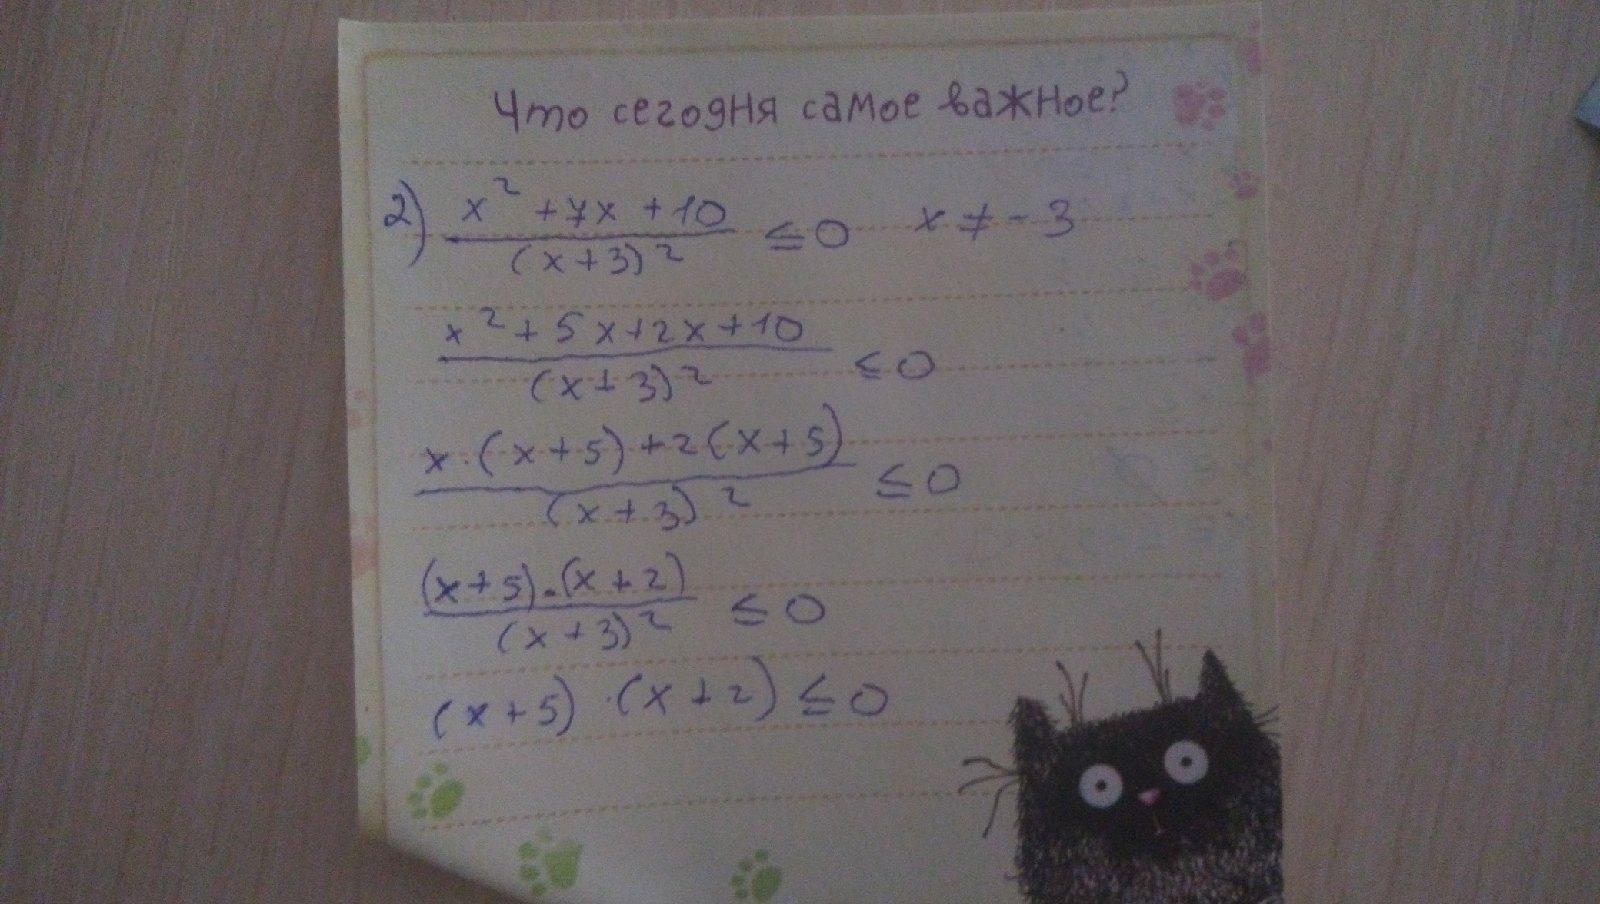 Что сегодня самое важное?
2) (x² + 7x + 10)/(x + 3)² ≤ 0 x ≠ - 3
(x² + 5x + 2x + 10)/(x + 3)² ≤ 0
(x · (x + 5) + 2(x + 5))/(x + 3)² ≤ 0
((x + 5) · (x + 2))/(x + 3)² ≤ 0
(x + 5) · (x + 2) ≤ 0